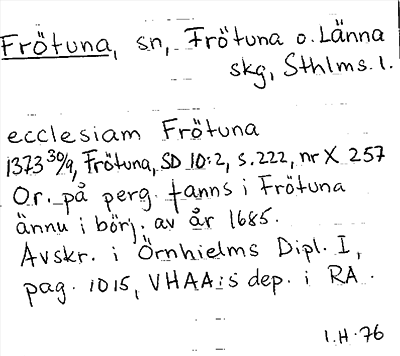 Frötuna, sn, Frötuna o. Länna
skg, Sthlms. l.
ecclesiam Frötuna
1373 30/9, Frötuna, SD 10:2, s. 222, nr X 257
Or. på perg. fanns i Frötuna
ännu i börj. av år 1685.
Avskr. i Örnhielms Dipl. I,
pag. 1015, VHAA:s dep. i RA.
I.H. 76